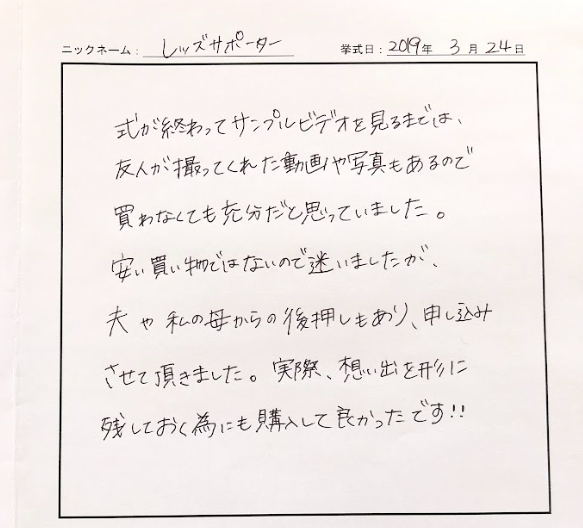 ニックネーム： レッズサポーター 挙式日： 2019年 3月 24日
式が終わってサンプルビデオを見るまでは、
友人が撮ってくれた動画や写真もあるので
買わなくても充分だと思っていました。
安い買い物ではないので迷いましたが、
夫や私の母からの後押しもあり、申し込み
させて頂きました。実際、想い出を形に
残しておく為にも購入して良かったです!!